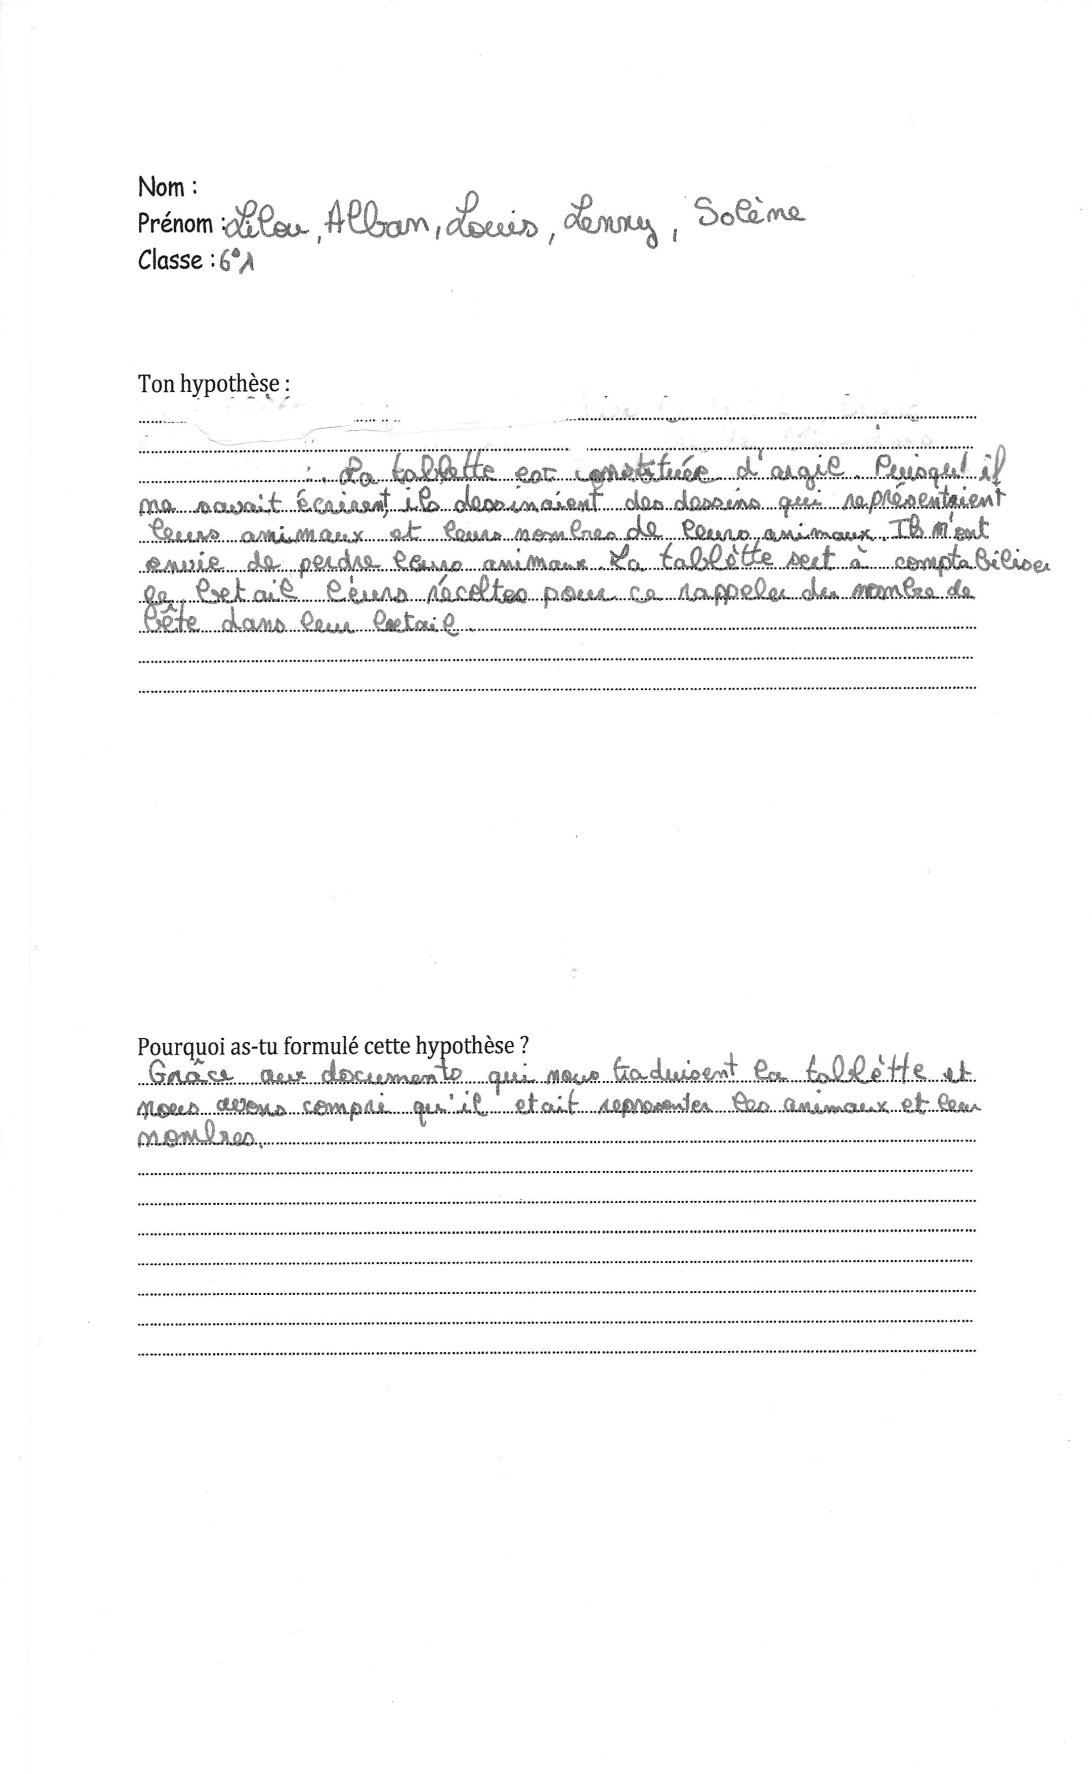 Nom :
Prénom : Lilou, Alban, Louis, Lenny, Solène
Classe : 6°1
Ton hypothèse :
: La tablette est constituée d'argil. Puisqu'il
ne savait écrirent, ils dessinaient des dessins qui représentaient
leurs animaux et leurs nombres de leurs animaux. Ils n'ont
envie de perdre leurs animaux. La tablètte sert à comptabiliser
le betail leurs récoltes pour ce rappeler du nombre de
bête dans leur betail
Pourquoi as-tu formulé cette hypothèse ?
Grâce aux documents qui nous traduisent la tablètte et
nous avons compri qu'il etait representer les animaux et leur
nombres.